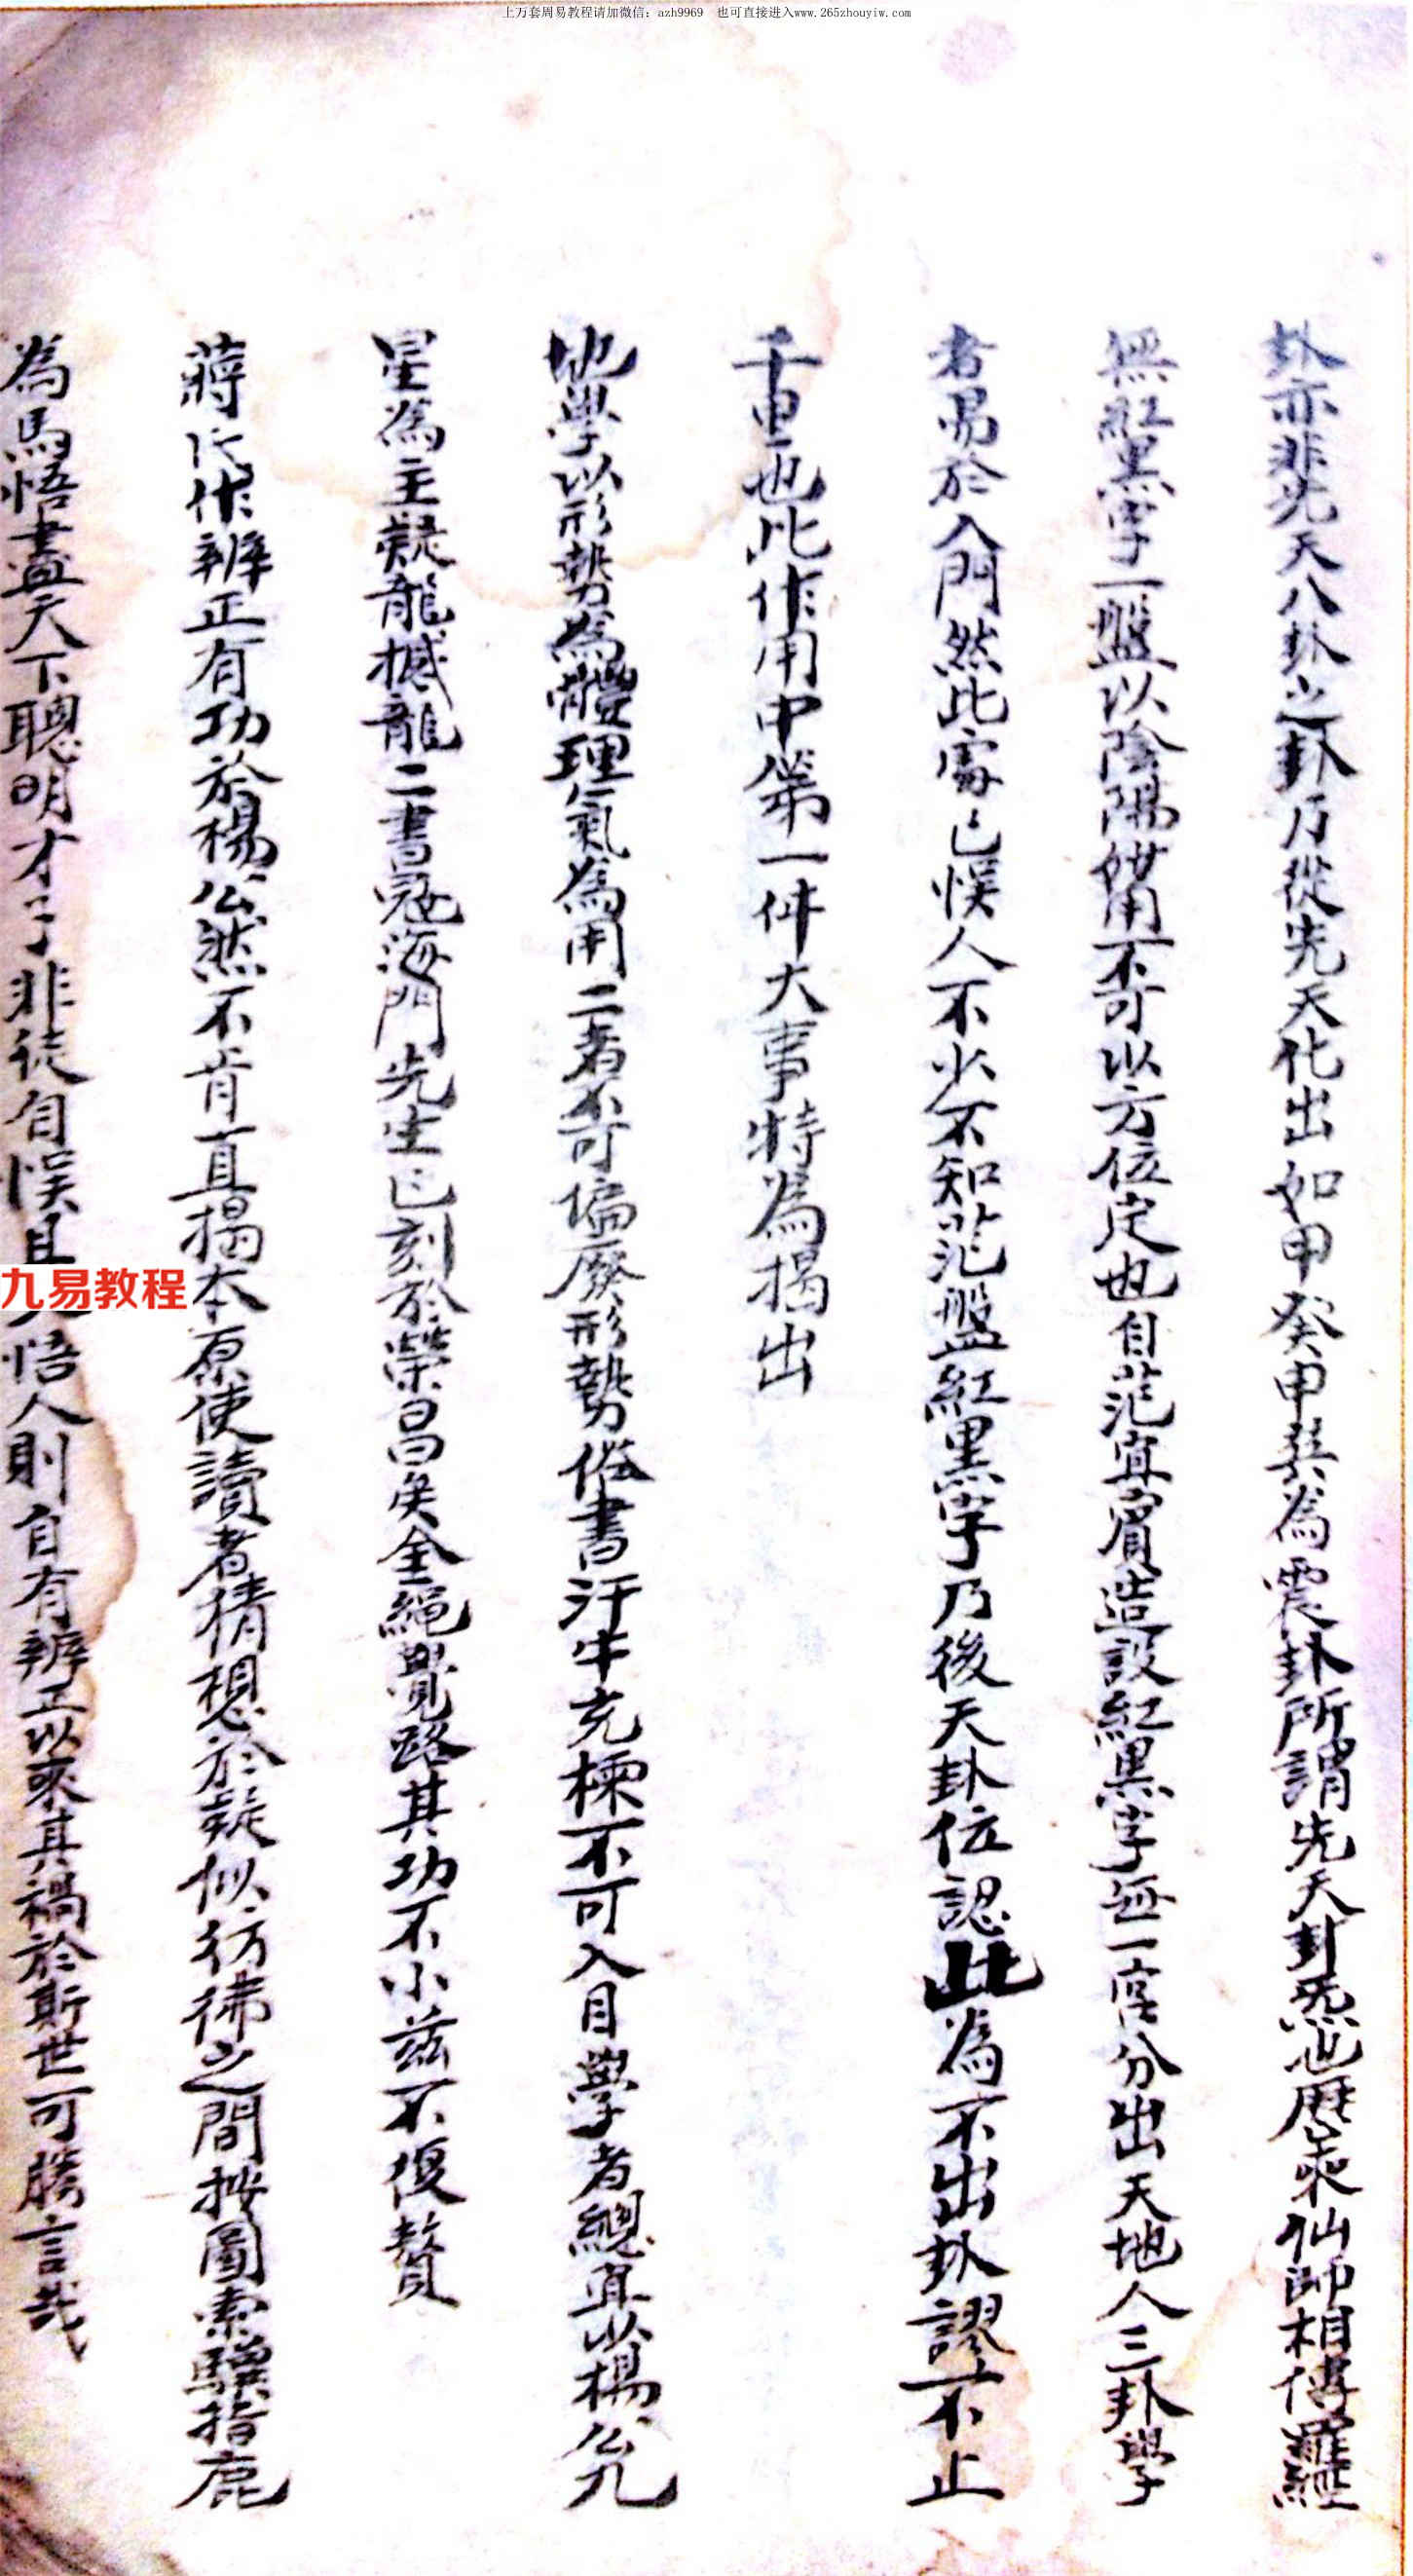 上万套周易教程请加微信：azh9969　也可直接进入www.265zhouyiw.com
卦亦非先天八卦之卦乃從先天化出如甲癸申巽為震卦所謂先天卦炁也歷来仙師相傳羅經
無紅黑字一盤以陰陽妙用不可以方位定也自范宜賓造設紅黑字無一宮分出天地人三卦學
者易於入門然此處已悮人不少不知范盤紅黑字乃後天卦位認此為不出卦謬不止
千里也此作用中第一件大事特為揭出
地學以形勢為體理氣為用二者不可偏廢形勢俗書汗牛充棟不可入目學者總宜以楊公九
星為主疑龍撼龍二書寇海門先生已刻於榮昌矣全繩覺路其功不小茲不復贅
蔣氏作辨正有功於楊公然不肯直揭本原使讀者猜想於疑似彷彿之間按圖索驥指鹿
為馬悟盡天下聰明才子非徒自悮且悟人則自有辨正以来其禍於斯世可勝言哉
九易教程